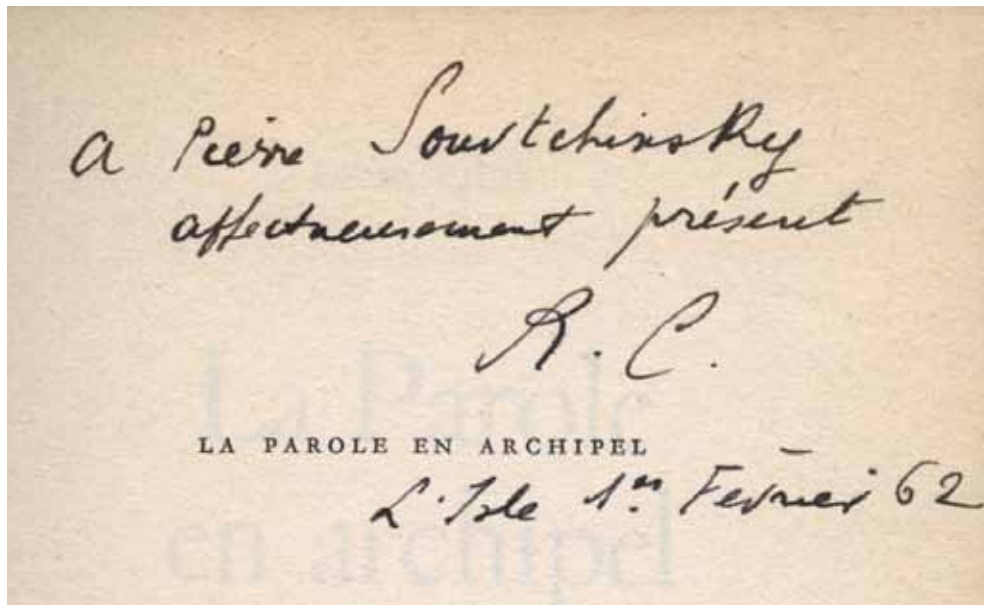 a Pierre Souvtchinsky
affectueusement présent
R. C.
LA PAROLE EN ARCHIPEL
L'Isle 1er Février 62
La Parole
en archipel